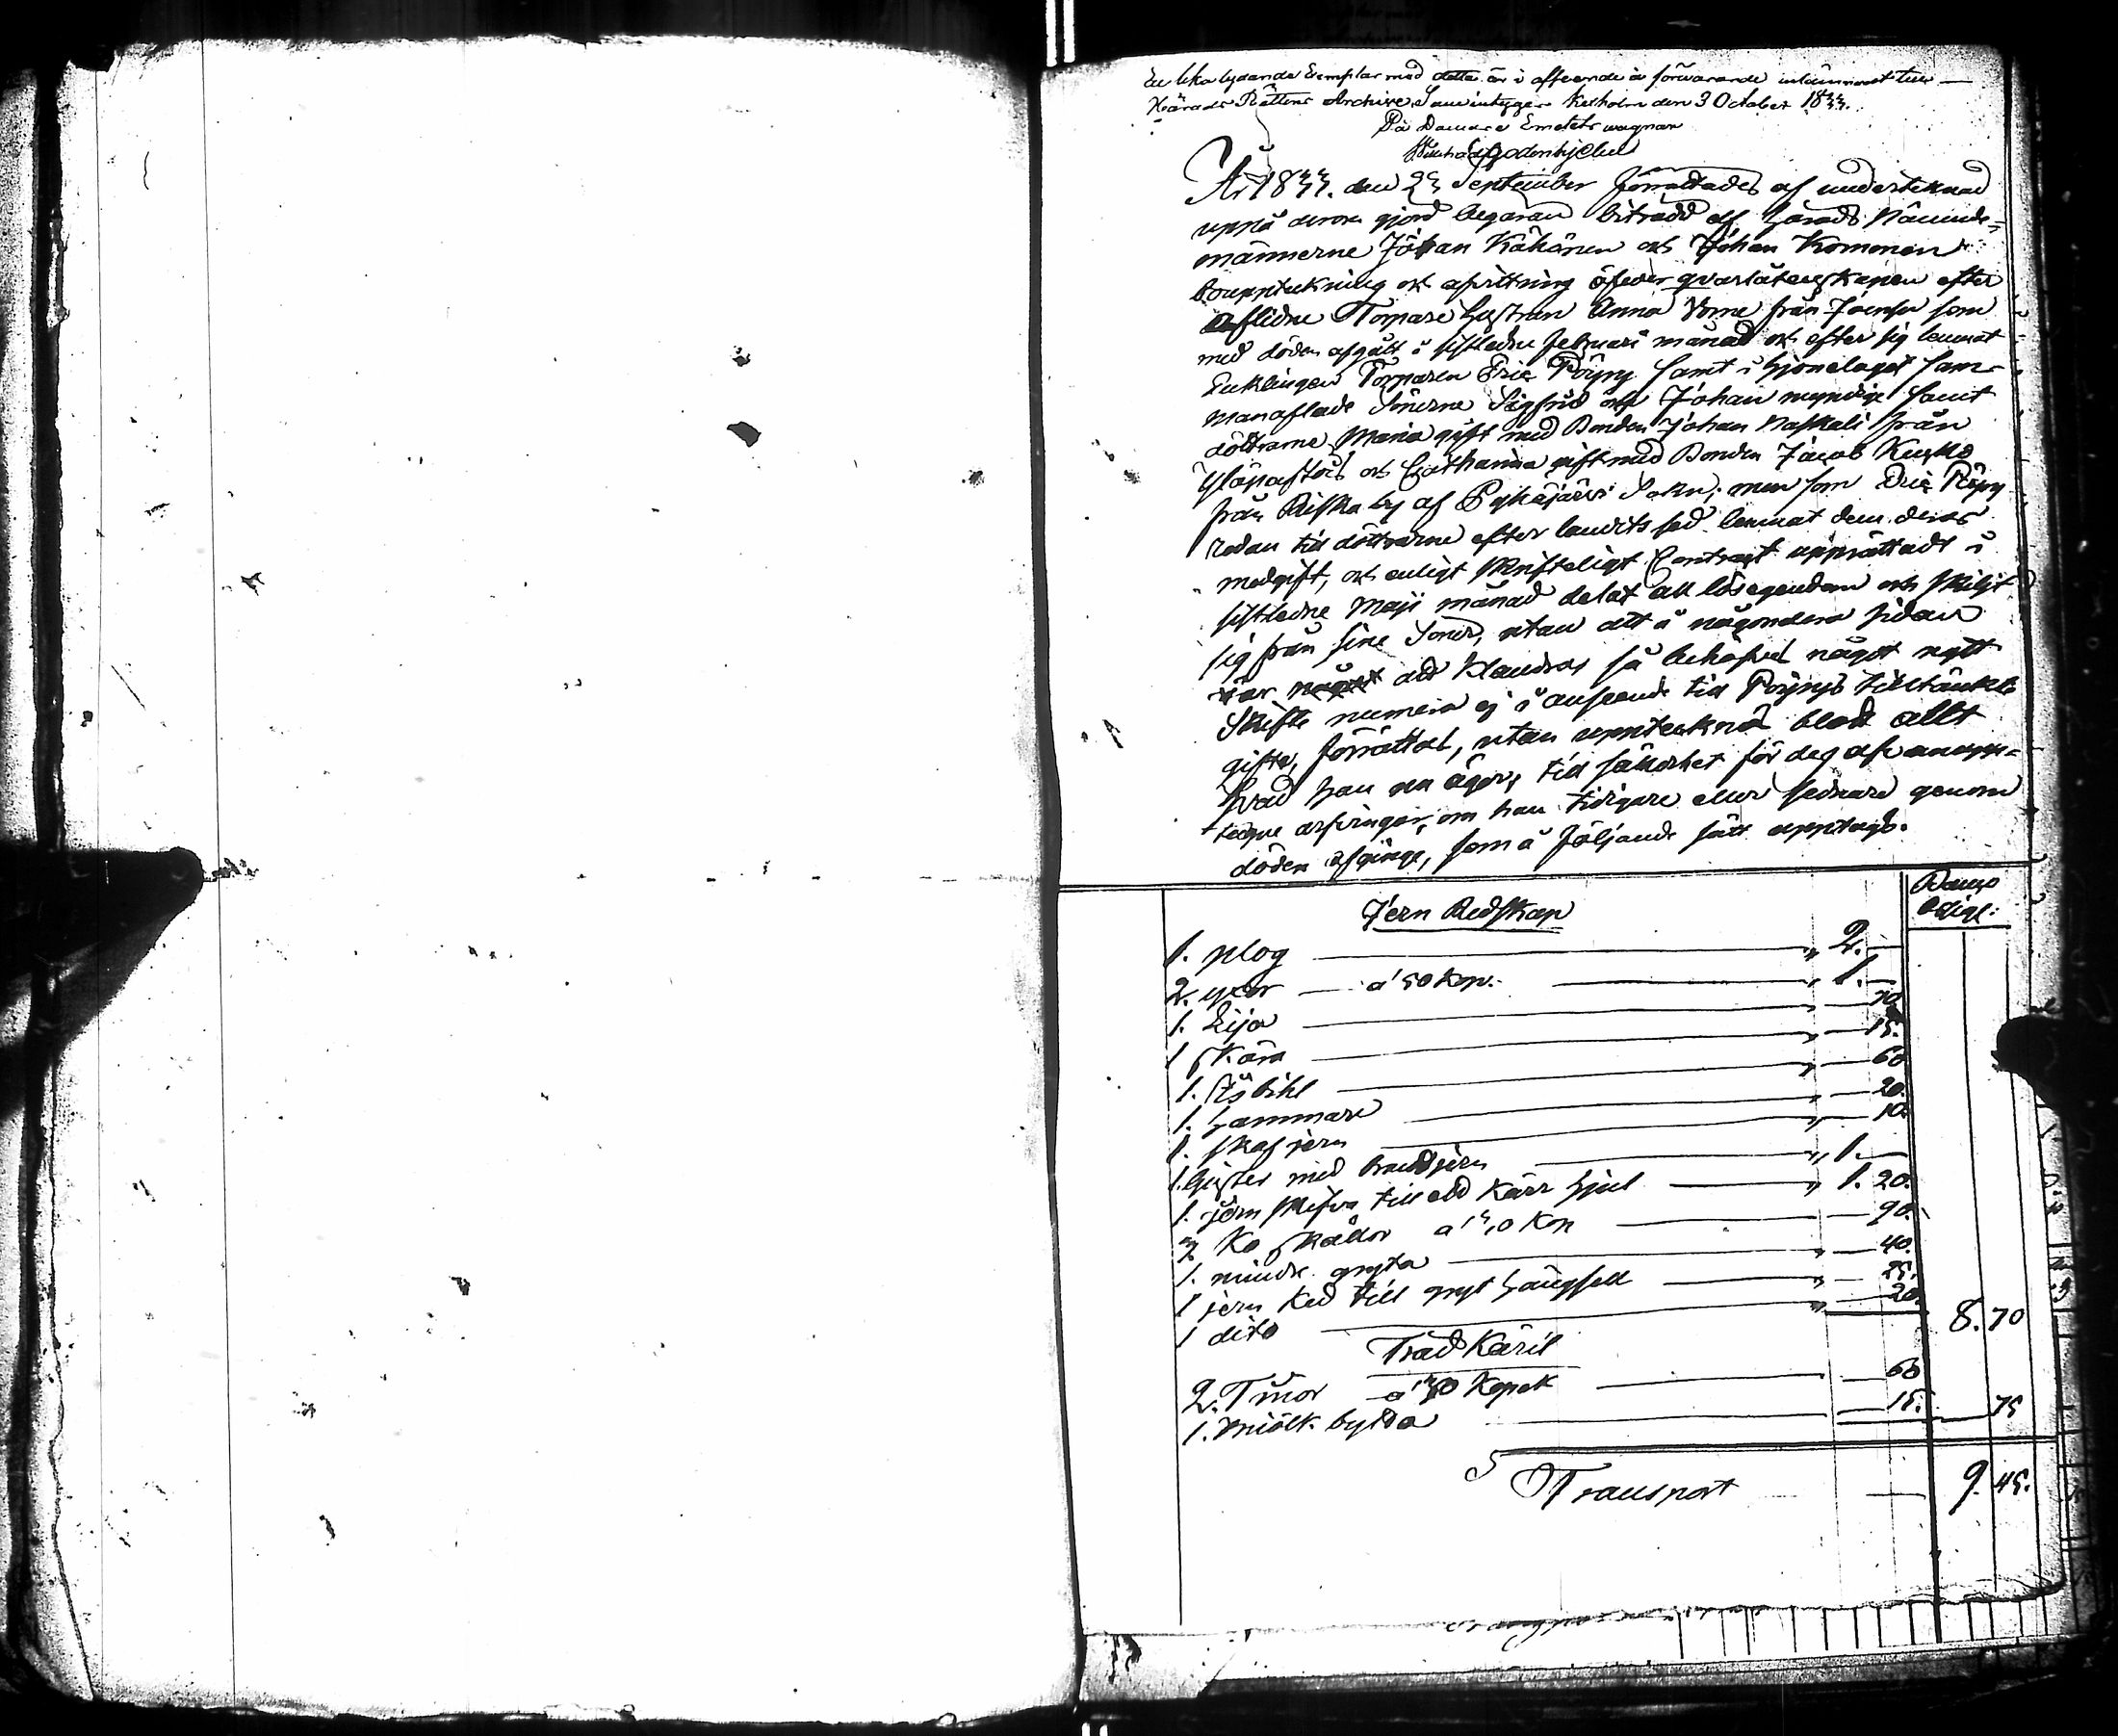 Ett lika lydande Exemplar med detta är i afseende å förvarande inlämnadt till
Härads Rättens Archive, Som intygar Kexholm den 3 October 1833.
På Domare Embetets wägnar
År 1833. den 23 September förrättades af undertecknad
uppå derom gjord begäran biträdd af Härads Nämnde-
männerne Johan Kähänen och Johan Kommonen
bouppteckning och afvittring öfver qvarlåtenskapen efter
aflidne Torpare hustrun Anna från som
med döden afgått i sistledne februari månad och efter sig lemnat
Enklingen Torparen Eric Pöyry samt i hjonelaget sam-
manaflade Sönerne Sigfrid och Johan myndige samt
döttrarne Maria gift med Bonden Johan Naskali från
och Catharina gift med Bonden Jacob
från Riska by af Pyhäjärvi Sokn; men som Eric Pöyry
redan till döttrarne efter landets sed lemnat dem deras
medgift, och enligt skrifteligt Contract upprättadt i
sistledne Maji månad delat all lösegendom och skiljt
sig från sine Söner, utan att å någondera sidan
är något att klandras så behöfves något nytt
Skifte numera ej i anseende till Pöyrys tilltänkte
gifte, förrättas, utan upptecknas blott allt
hvad han nu äger, till säkerhet för deße
arfvingar, om han tidigare eller sednare genom
döden afginge, som å följande sätt upptogs.
Jern Redskap
1. plog 2. —
2. yxor a' 50 Kop. 1. —
1. Lija
1 skära 15.
1. 60
1. hammare 20.
1. skaf jern 10.
1. med 1. —
1. jern till ett Kärr hjul 1. 20.
3 Ko skällor a' 30 Kop 90.
1. mindre gryta 40.
1 jern Ked till gryt hängsell 25.
1 dito 20. 8. 70
Träd Käril
2. Tinor a' 30 Kopek 60
1. miölk bytta 15. 75
Transport 9. 45.